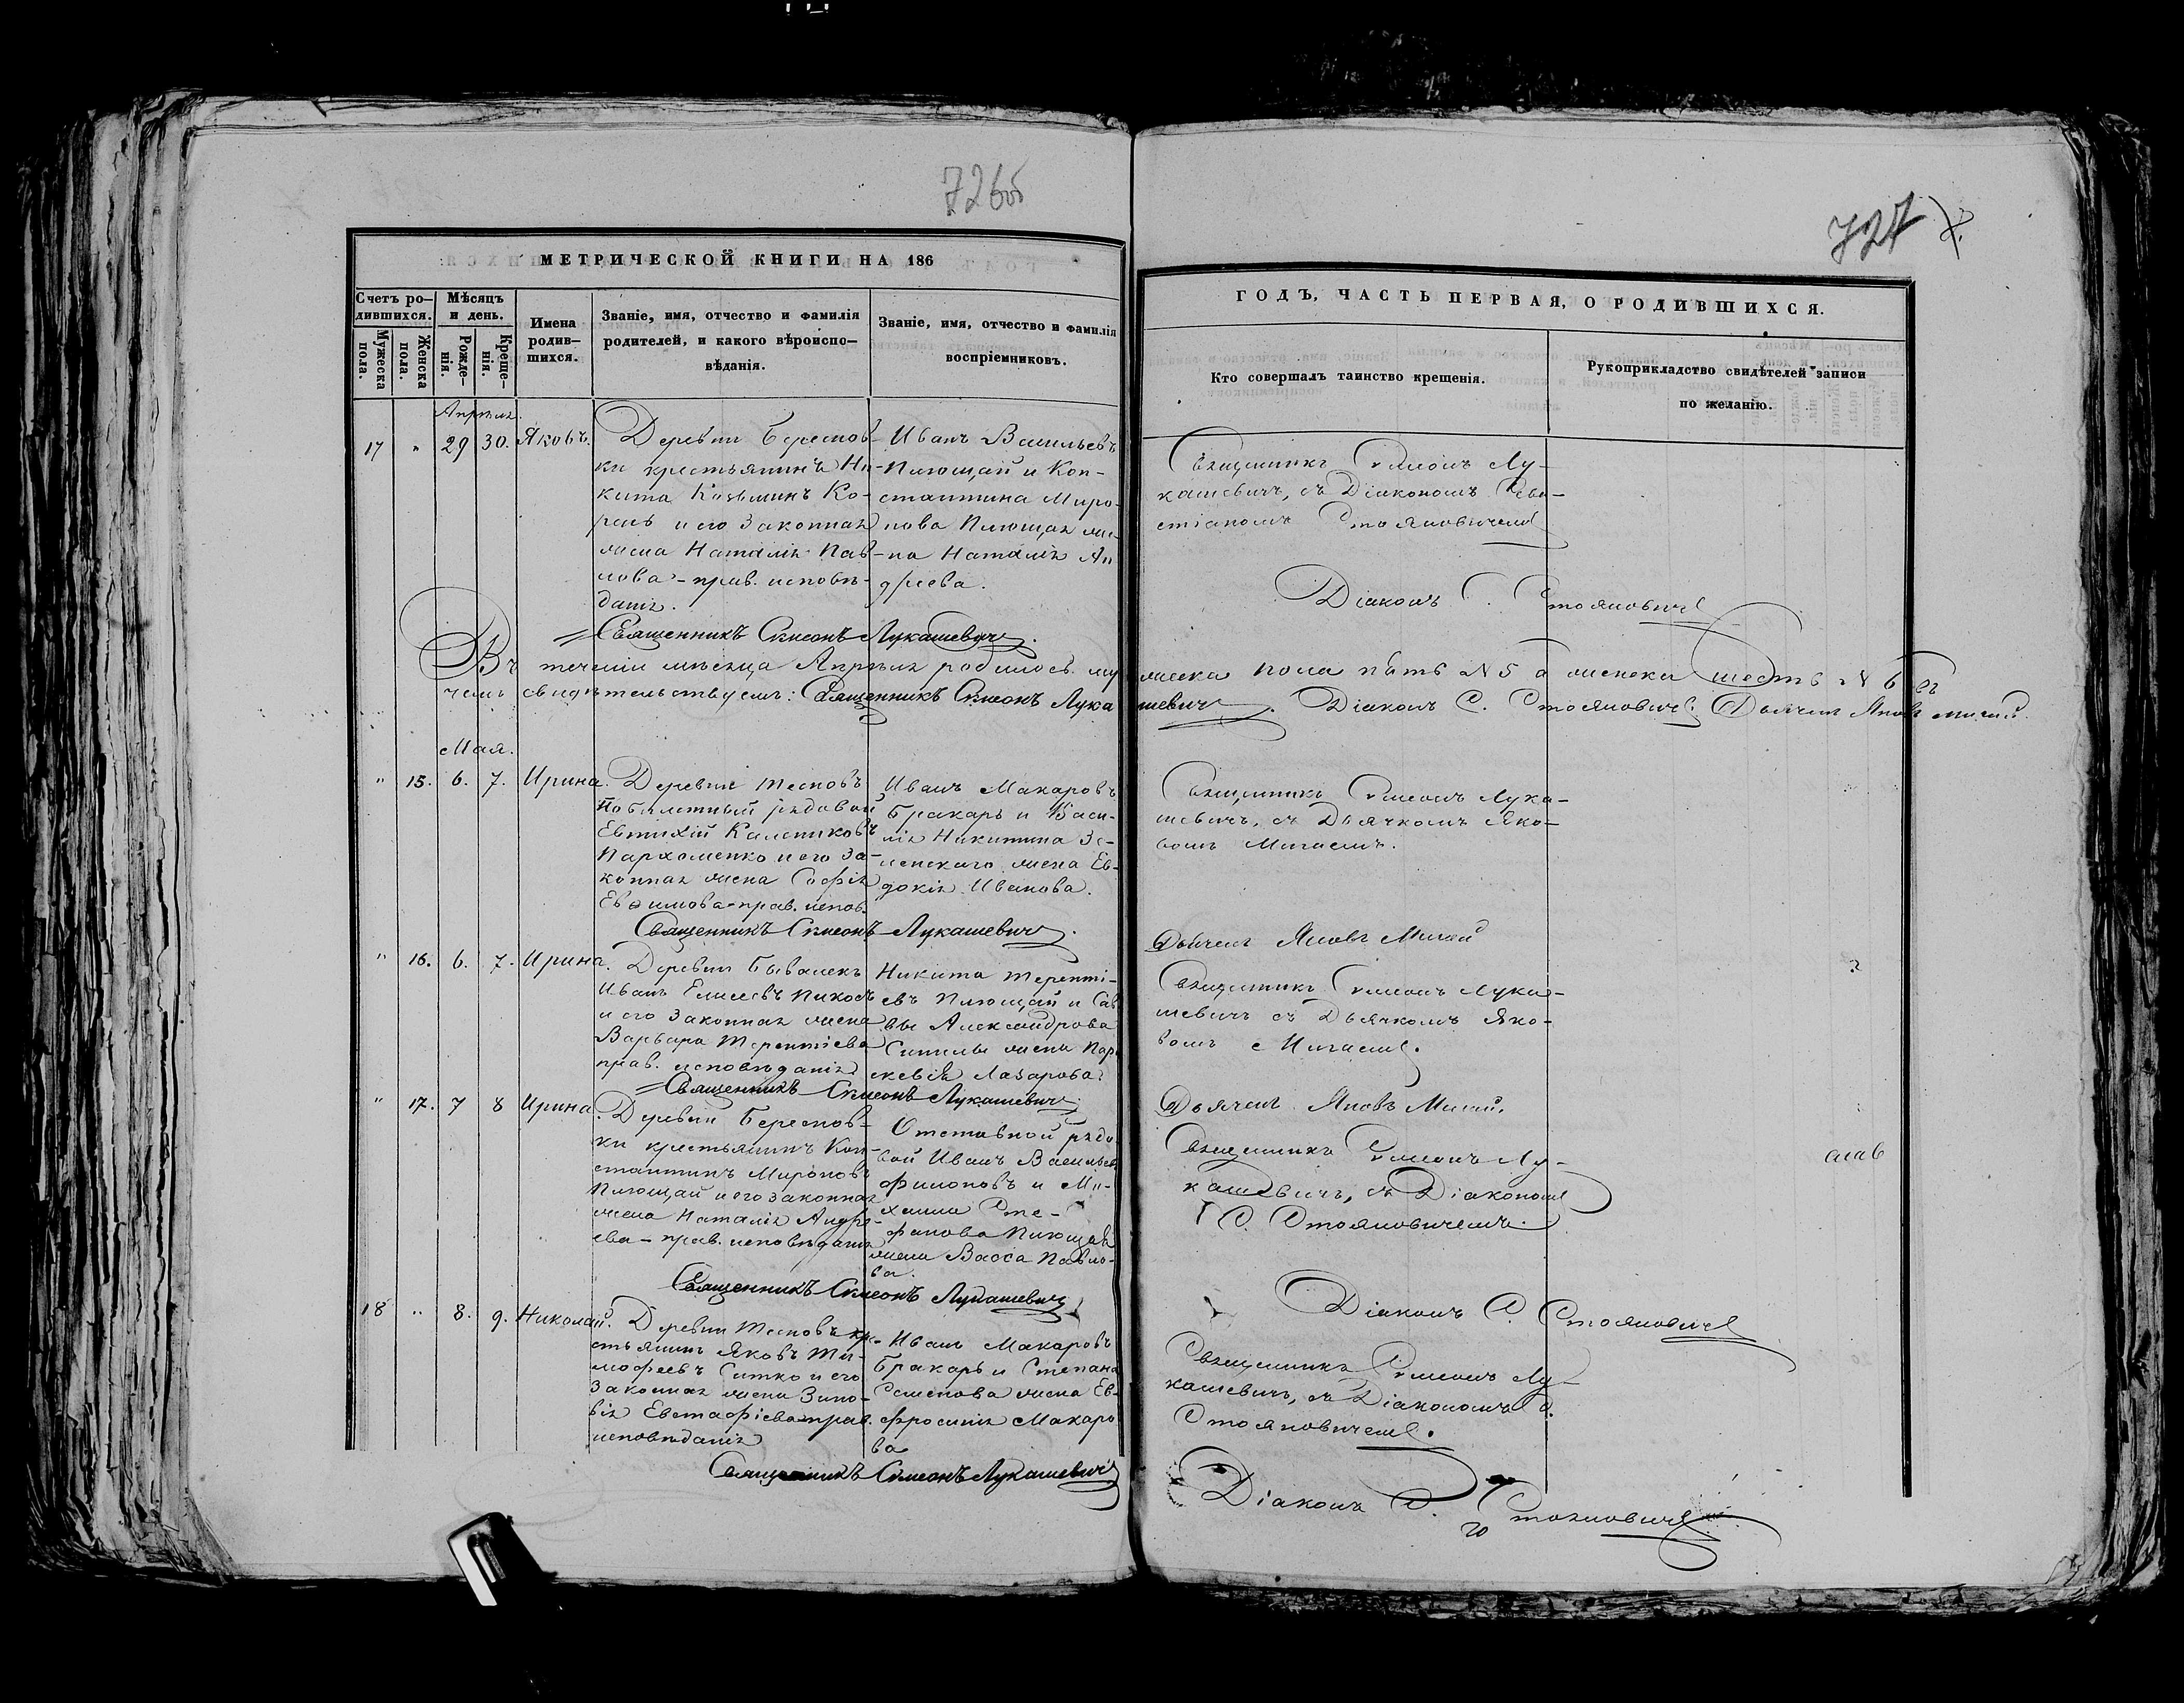 726об
727
МЕТРИЧЕСКОЙ КНИГИ НА 186
ГОДЪ, ЧАСТЬ ПЕРВАЯ, О РОДИВШИХСЯ.
Счетъ ро-
дившихся.
Мужеска
пола.
Женска
пола.
Мѣсяцъ
и день.
Рожде-
нія.
Креще-
нія.
Имена
родив-
шихся.
Званіе, имя, отчество и фамилія
родителей, и какого вѣроиспо-
вѣданія.
Званіе, имя, отчество и фамилія
воспріемниковъ.
Кто совершалъ таинство крещенія.
Рукоприкладство свидѣтелей записи
по желанію.
Апрѣля.
17 " 29 30. Яковъ.
Деревни Берестов-
ки крестьянинъ Ни-
кита Козьминъ Ко-
рень и его законная
жена Наталія Пав-
лова - прав. исповѣ-
данія.
Иванъ Васильевъ
Плющай и Кон-
стантина Миро-
нова Плющая же-
на Наталія Ан
дреева.
Священникъ Симеонъ Лу-
кашевичъ, съ Діакономъ Сева-
стіаномъ Стояновичемъ
Діаконъ С. Стояновичъ
Священникъ Симеонъ Лукашевичъ.
Въ теченіи мѣсяца Апрѣля родилось мужеска пола пять N 5 а женска шесть N 6 въ
чемъ свидѣтельствуемъ: Священникъ Симеонъ Лукашевичъ. Діаконъ С. Стояновичъ. Дьячекъ Яковъ Мигай.
Мая.
" 15. 6. 7. Ирина.
Деревни Тесновъ
По билетный рядовой
Евтихій Калениковъ
Пархоменко и его за-
конная жена Софія
Евфимова - прав. испов.
Иванъ Макаровъ
Бракарь и Васи-
лія Никитина Зе-
ленскаго жена Ев-
докія Иванова.
Священникъ Симеонъ Лука-
шевичъ, съ Дьячкомъ Яко-
вомъ Мигаемъ.
Священникъ Симеонъ Лукашевичъ.
Дьячекъ Яковъ Мигай
" 16. 6. 7. Ирина.
Деревни Бывалекъ
Иванъ Елисеевъ
и его законная жена
Варвара Терентіева
прав. исповѣданія
Никита Теренті-
евъ Плющай и Сав
вы Александрова
жена Пара
скевія Лазарова.
Священникъ Симеонъ Лука-
шевичъ съ Дьячкомъ Яко-
вомъ Мигаемъ.
Священникъ Симеонъ Лукашевичъ.
Дьячекъ Яковъ Мигай.
" 17. 7 8 Ирина.
Деревни Берестов-
ки крестьянинъ Кон-
стантинъ Мироновъ
Плющай и его законная
жена Наталія Андре-
ева - прав. исповѣданія
Отставной рядо-
вой Иванъ Васильев
Филоновъ и Ми-
хаила Сте-
фанова Плющая
жена Васса Павло-
ва.
Священникъ Симеонъ Лу-
кашевичъ, съ Діакономъ
С. Стояновичемъ.
Священникъ Симеонъ Лукашевичъ
Діаконъ С. Стояновичъ
18 " 8. 9. Николай.
Деревни Тесновъ кре-
стьянинъ Яковъ Ти-
мофеевъ Ситко и его
законная жена Зино-
вія Евстафіева - прав.
исповѣданія
Иванъ Макаровъ
Бракарь и Степана
Семенова жена Ев-
фросинія Макаро
ва
Священникъ Симеонъ Лу-
кашевичъ, съ Діакономъ С.
Стояновичемъ.
Священникъ Симеонъ Лукашевичъ
Діаконъ С. Стояновичъ